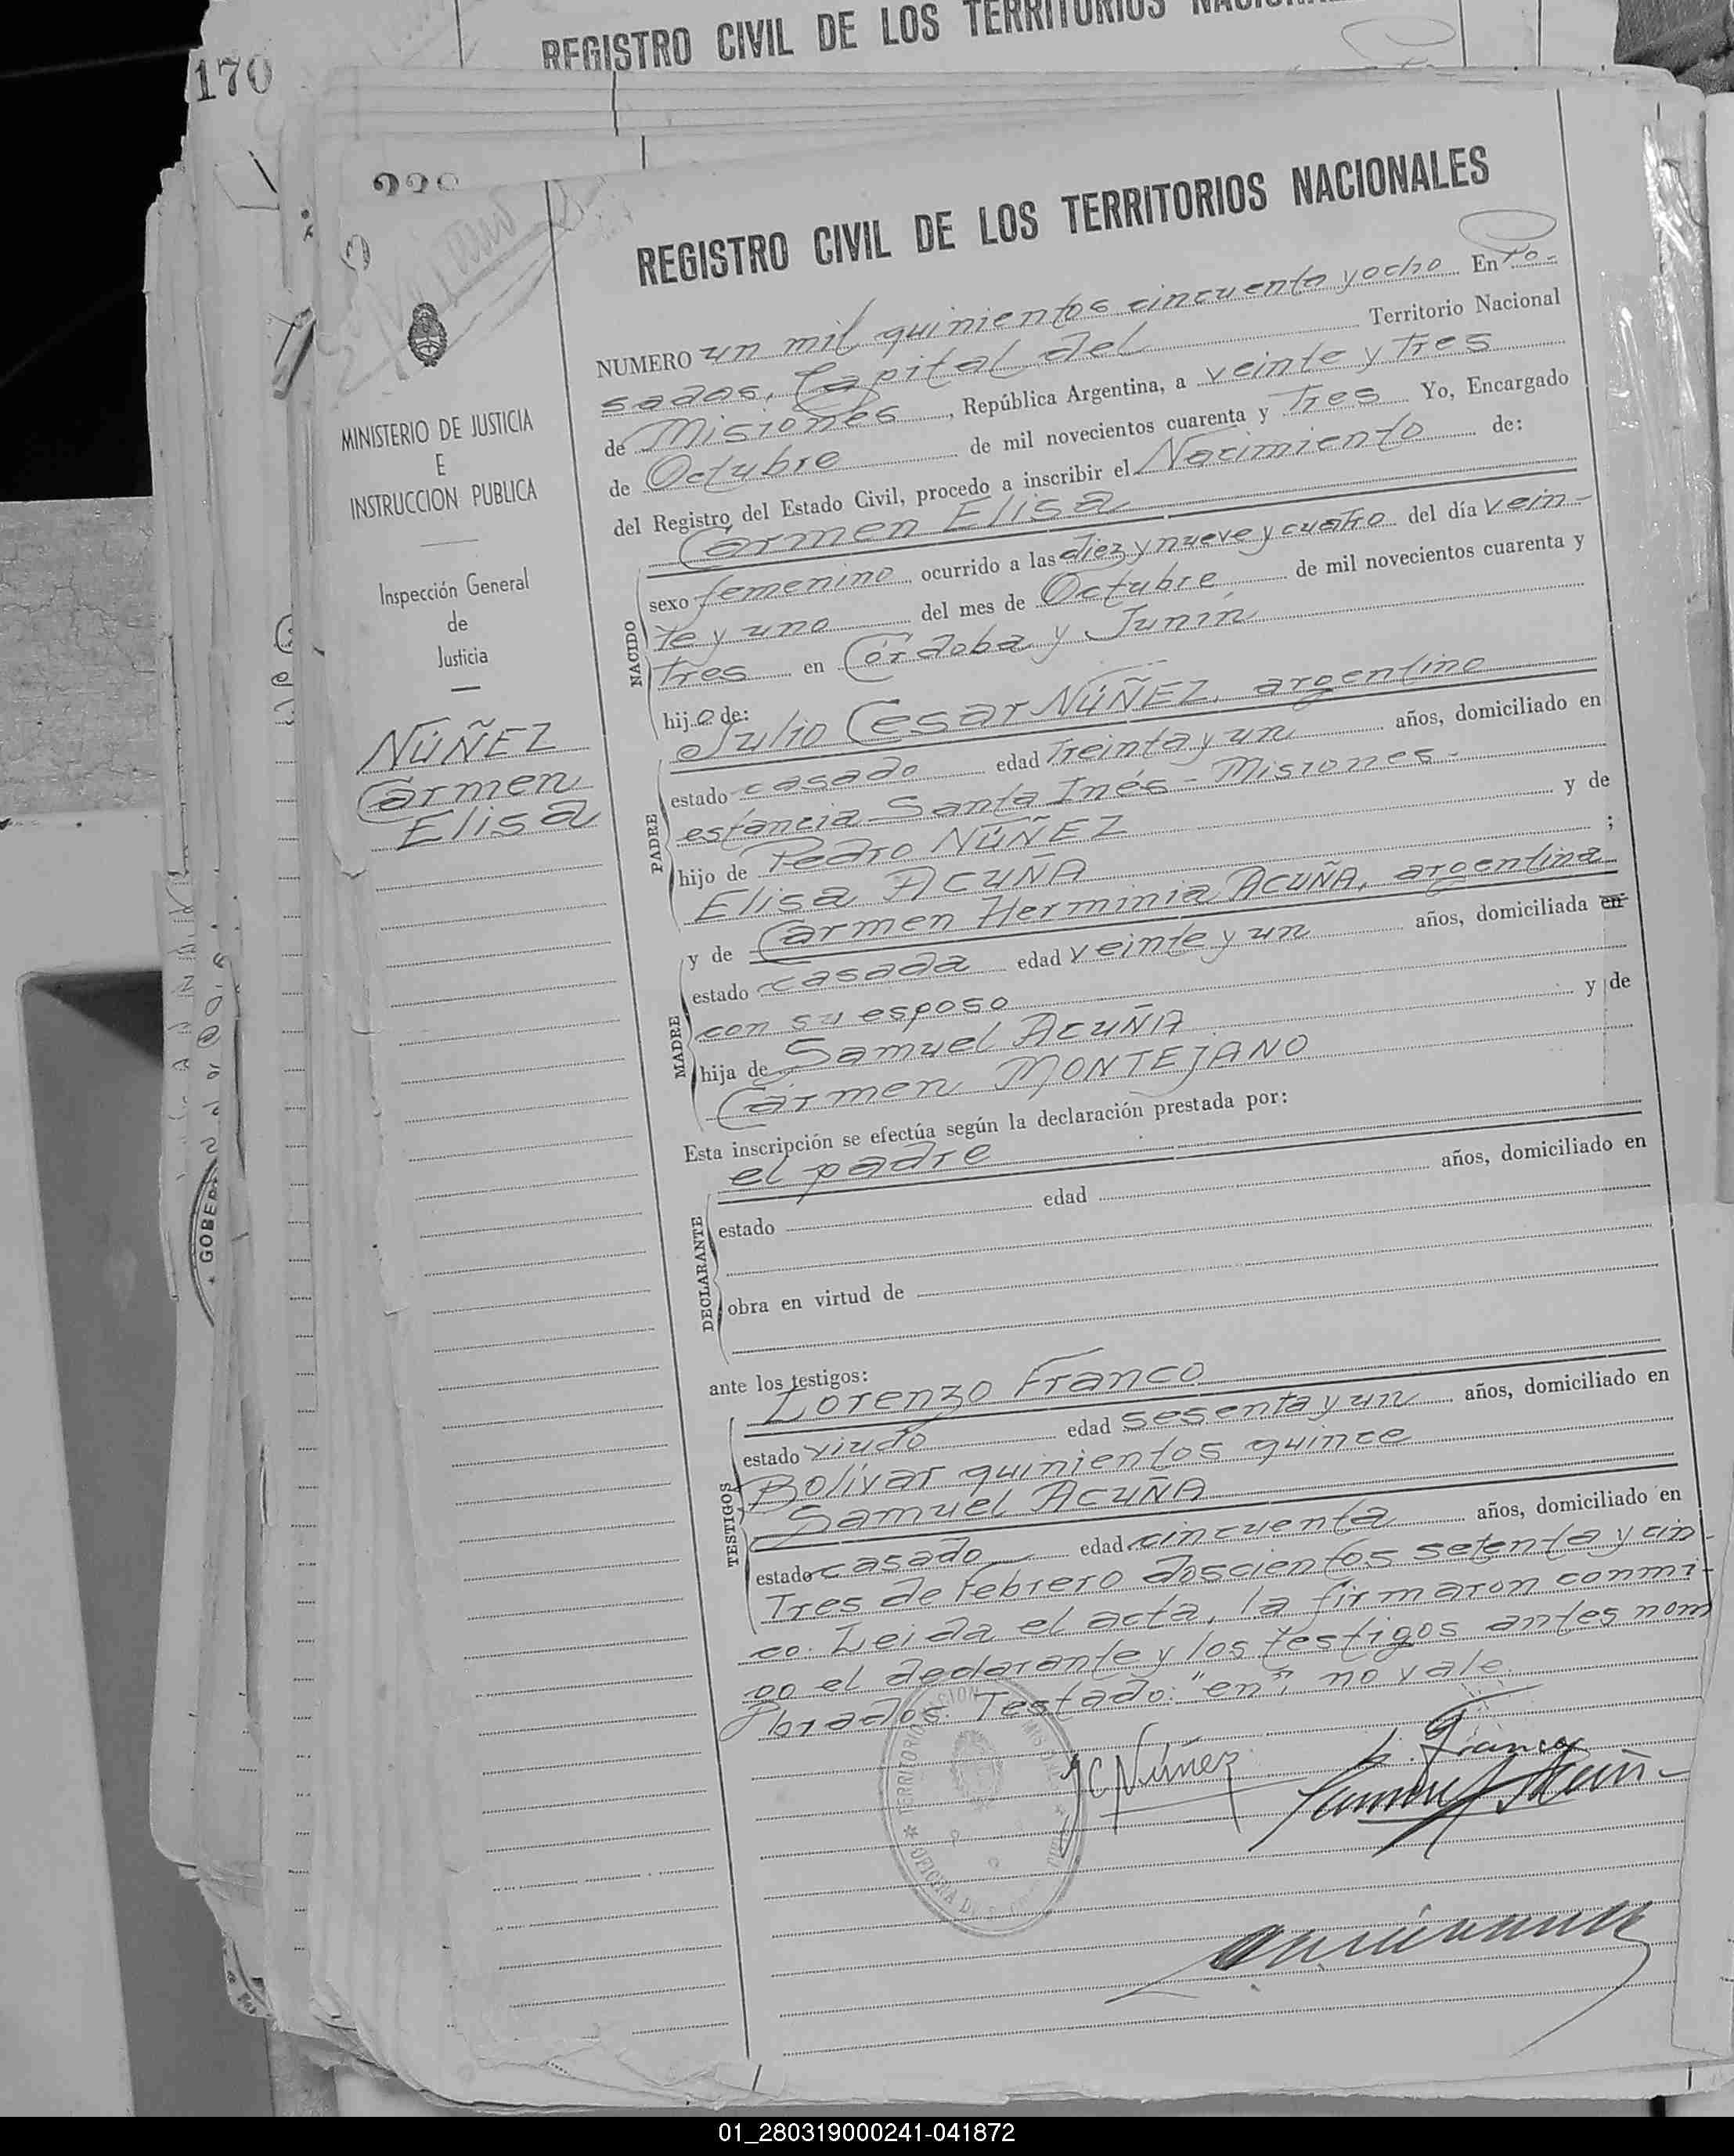 REGISTRO CIVIL DE LOS TERRITORIOS
170
REGISTRO CIVIL DE LOS TERRITORIOS NACIONALES
MINISTERIO DE JUSTICIA
E
INSTRUCCION PUBLICA
Inspección General
de
Justicia
NÚÑEZ
Carmen
Elisa
NUMERO un mil quinientos cincuenta y ocho En Po-
sadas, Capital del Territorio Nacional
de Misiones, República Argentina, a veinte y tres
de Octubre de mil novecientos cuarenta y Tres Yo, Encargado
del Registro del Estado Civil, procedo a inscribir el Nacimiento de:
Carmen Elisa
NACIDO
sexo femenino ocurrido a las diez y nueve y cuatro del día vein-
te y uno del mes de Octubre de mil novecientos cuarenta y
tres en Córdoba y Junín
hijo de:
Julio Cesar NÚÑEZ, argentino
PADRE
estado casado edad Treinta y un años, domiciliado en
estancia Santa Inés - Misiones -
hijo de Pedro NÚÑEZ y de
Elisa ACUÑA ;
y de Carmen Herminia ACUÑA, argentina
MADRE
estado casada edad veinte y un años, domiciliada en
con su esposo
hija de Samuel ACUÑA y de
Carmen MONTEJANO
Esta inscripción se efectúa según la declaración prestada por:
el padre
DECLARANTE
estado edad años, domiciliado en
obra en virtud de
ante los testigos:
Lorenzo Franco
TESTIGOS
estado viudo edad sesenta y un años, domiciliado en
Bolívar quinientos quince
Samuel ACUÑA
estado casado edad cincuenta años, domiciliado en
Tres de Febrero doscientos setenta y cin-
co. Leida el acta, la firmaron conmi-
go el declarante y los testigos antes nom
brados. Testado: "en", no vale.
JC Núñez
L. Franco
Samuel Acuña
TERRITORIO
OFICINA
GOBER
01_280319000241-041872